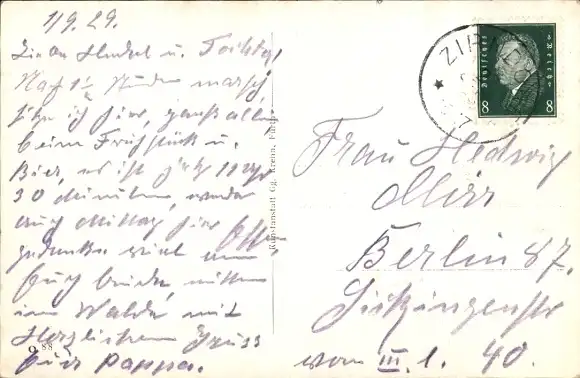 1/9. 29.
Liebe Hedel u. Tochter
Nach 1½ Stunden marsch
sitze ich hier, ganß allein
beim Frühstück u.
Bier, es ist jetzt 11 uhr
30 Minuten, werde
auch Mittag hier
gedenke viel an
Euch beide, mitten
im Walde mit
Herzlichem Gruss
Euer Pappa.
9 88
Kunstanstalt Gg. Krenn, Fürth
Deutsches Reich
8 8
Frau Hedwig
Berlin 87.
Sickingenstr
vorn III. 1. 40.